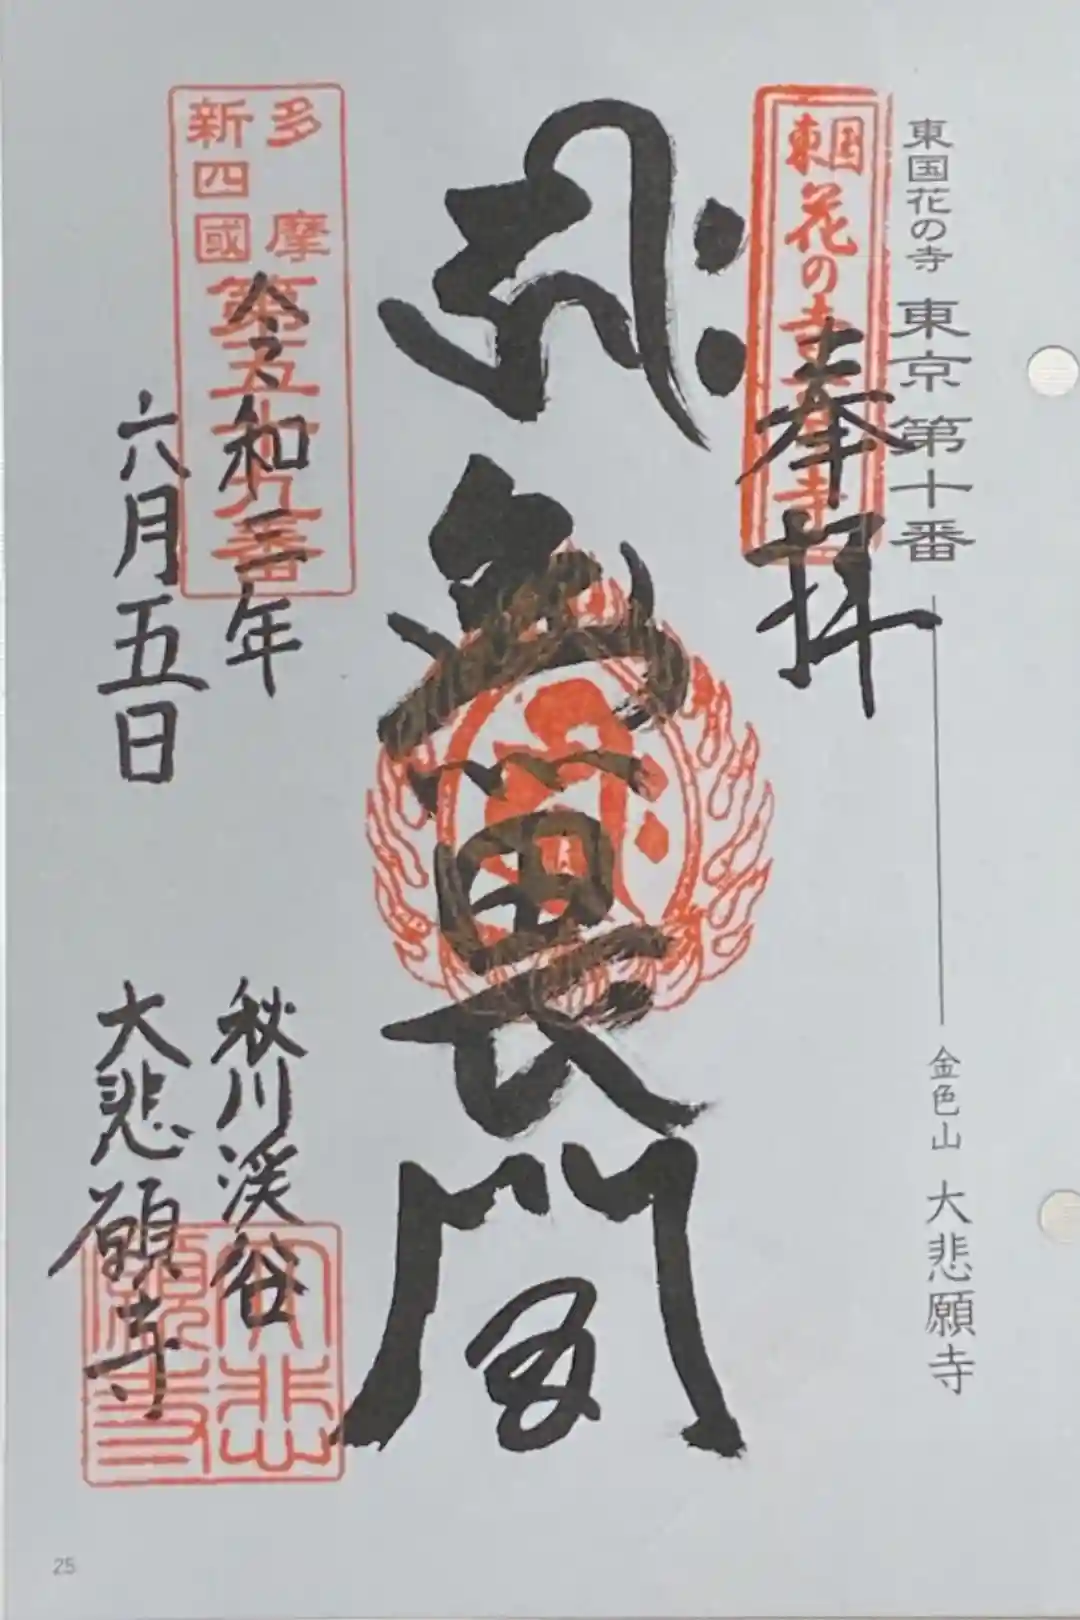 東国花の寺 東京第十番 金色山 大悲願寺
東国
花の寺
奉拝
無畏閣
多摩
新四國
第五十九番
令和三年
六月五日
秋川渓谷
大悲願寺
25